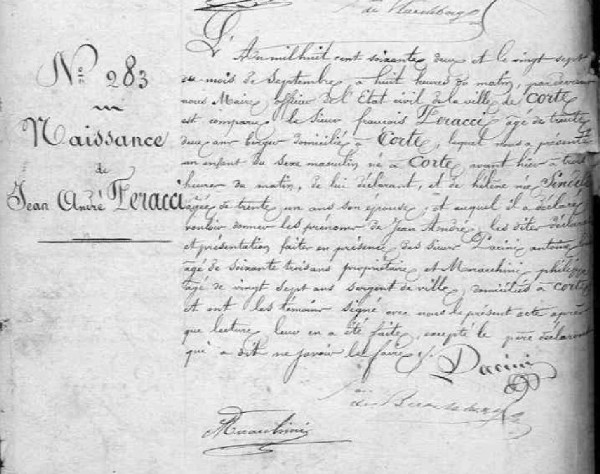 N° 283
Naissance
de
Jean André Feracci
L'An mil huit cent soixante deux et le vingt sept
du mois de Septembre à huit heures du matin, par devant
nous Maire officier de l'Etat civil de la ville de Corte
est comparu le Sieur francois Feracci âgé de trente
deux ans berger domicilié à Corte, lequel nous a présenté
un enfant du sexe masculin né à Corte avant hier à trois
heures du matin, de lui déclarant, et de hélène née
âgée de trente un ans son épouse, et auquel il a déclaré
vouloir donner les prénoms de Jean André, les dites déclaration
et présentation faites en présence des Sieurs Pacini antoine
âgé de soixante trois ans propriétaire et Maracchini philippe
âgé de vingt sept ans sergent de ville, domiciliés à Corte
et ont les témoins signé avec nous le présent acte après
que lecture leur en a été faite, excepté le père déclarant
qui a dit ne savoir le faire ./.
Pacini